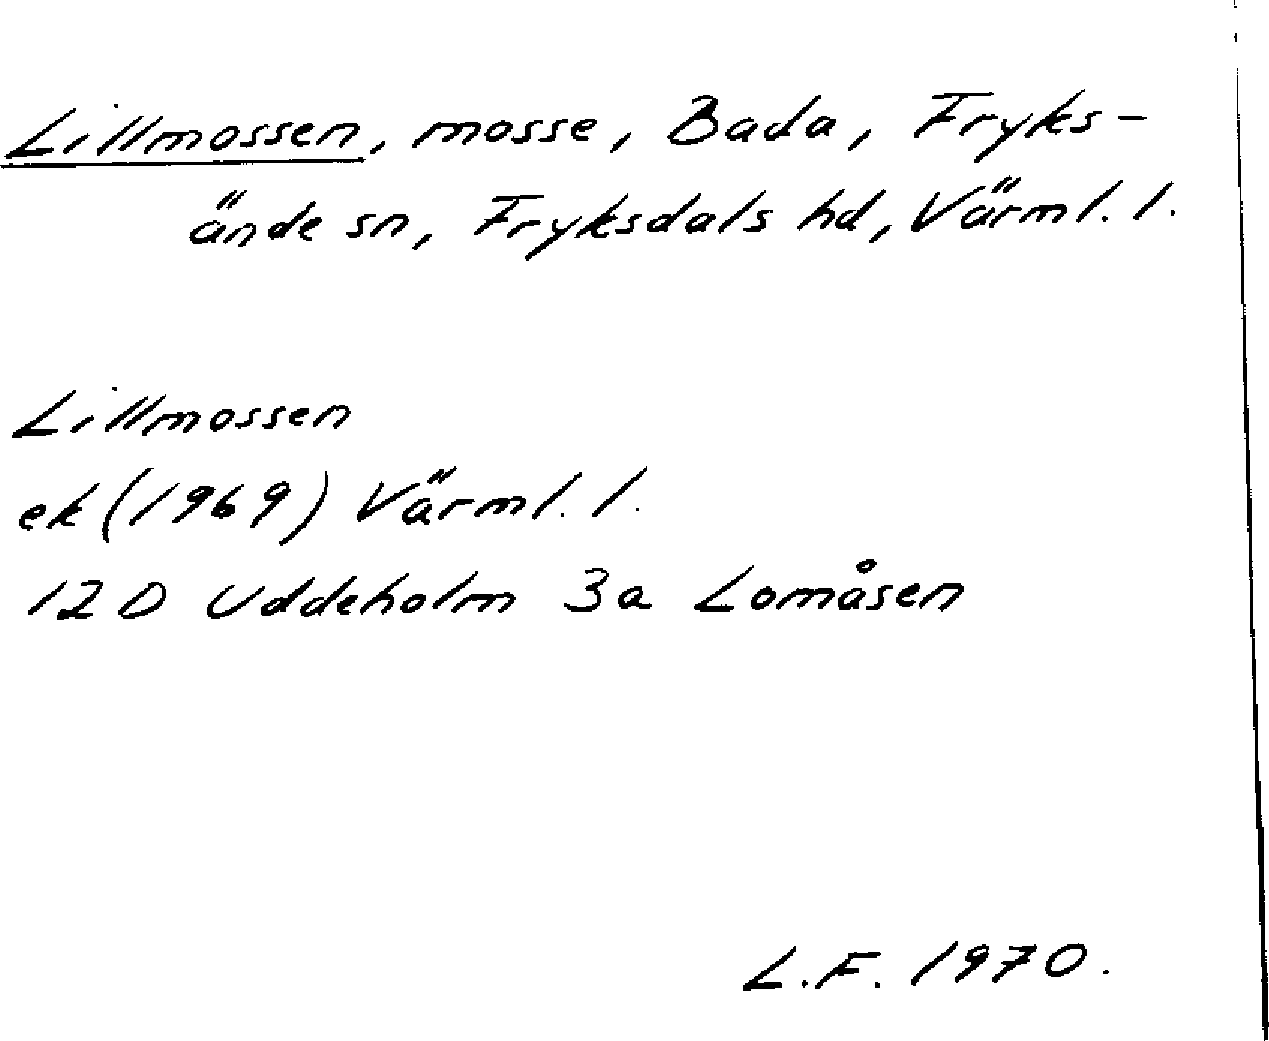 Lillmossen, mosse, Bada, Fryks-
ände sn, Fryksdals hd, Värml. l.
Lillmossen
ek (1969) Värml. l.
12 D Uddeholm 3a Lomåsen
L.F. 1970.